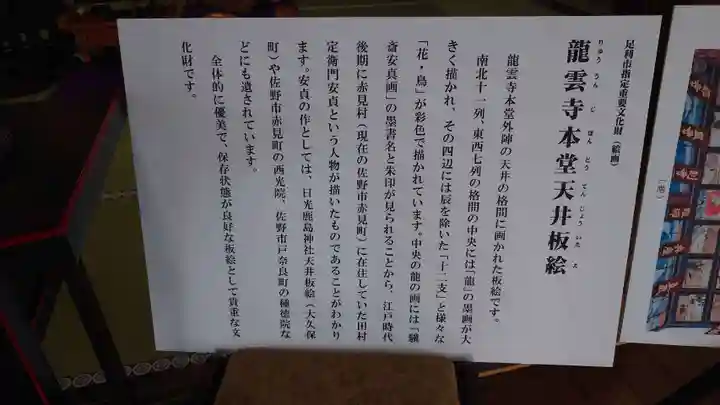 足利市指定重要文化財（絵画）
龍雲寺本堂天井板絵
りゅううんじほんどうてんじょういたえ
龍雲寺本堂外陣の天井の格間に画かれた板絵です。
南北十一列、東西七列の格間の中央には「龍」の墨画が大
きく描かれ、その四辺には辰を除いた「十二支」と様々な
「花・鳥」が彩色で描かれています。中央の龍の画には「驥
斎安真画」の墨書名と朱印が見られることから、江戸時代
後期に赤見村（現在の佐野市赤見町）に在住していた田村
定衛門安貞という人物が描いたものであることがわかり
ます。安貞の作としては、日光鹿島神社天井板絵（大久保
町）や佐野市赤見町の西光院、佐野市戸奈良町の種徳院な
どにも遺されています。
全体的に優美で、保存状態が良好な板絵として貴重な文
化財です。